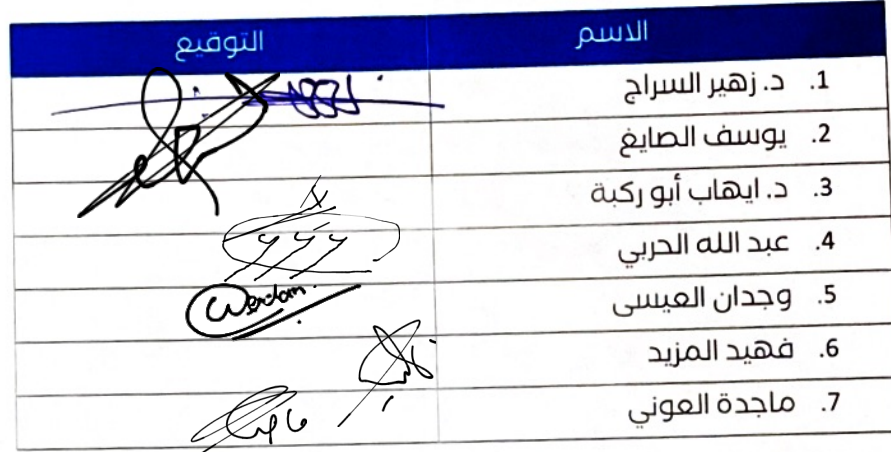 الاسم التوقيع
1. د. زهير السراج
2. يوسف الصايغ
3. د. ايهاب أبو ركبة
4. عبد الله الحربي
5. وجدان العيسى
6. فهيد المزيد
7. ماجدة العوني